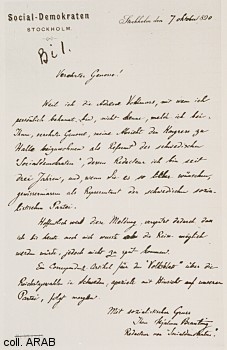 Social-Demokraten
STOCKHOLM.
Stockholm den 7 oktober 1890
Bil.
Verehrter Genosse!
Weil ich die Adresse Vollmars, mit wem ich
persönlich bekannt bin, nicht kenne, melde ich bei
Ihnen, verehrter Genosse, meine Absicht den Kongress zu
Halle beizuwohnen als Referent des schwedischen
"Socialdemokraten", dessen Redakteur ich bin seit
drei Jahren, und, wenn Sie es so wünschen,
gewissermassen als Repräsentant der schwedischen sozia-
listischen Partei.
Hoffentlich die Meldung, dadurch dass
ich bis heute noch nicht wusste ob die Reise möglich
werden würde, jedoch nicht zu spät kommen.
Ein Correspondenz Artikel für das "Volksblatt" über die
Reichstagswahlen in Schweden, speziell mit Hinsicht auf unserer
Partei, folgt morgen.
Mit sozialistischem Gruss
Ihr Hjalmar Branting
Redakteur von "Socialdemokraten".
coll. ARAB